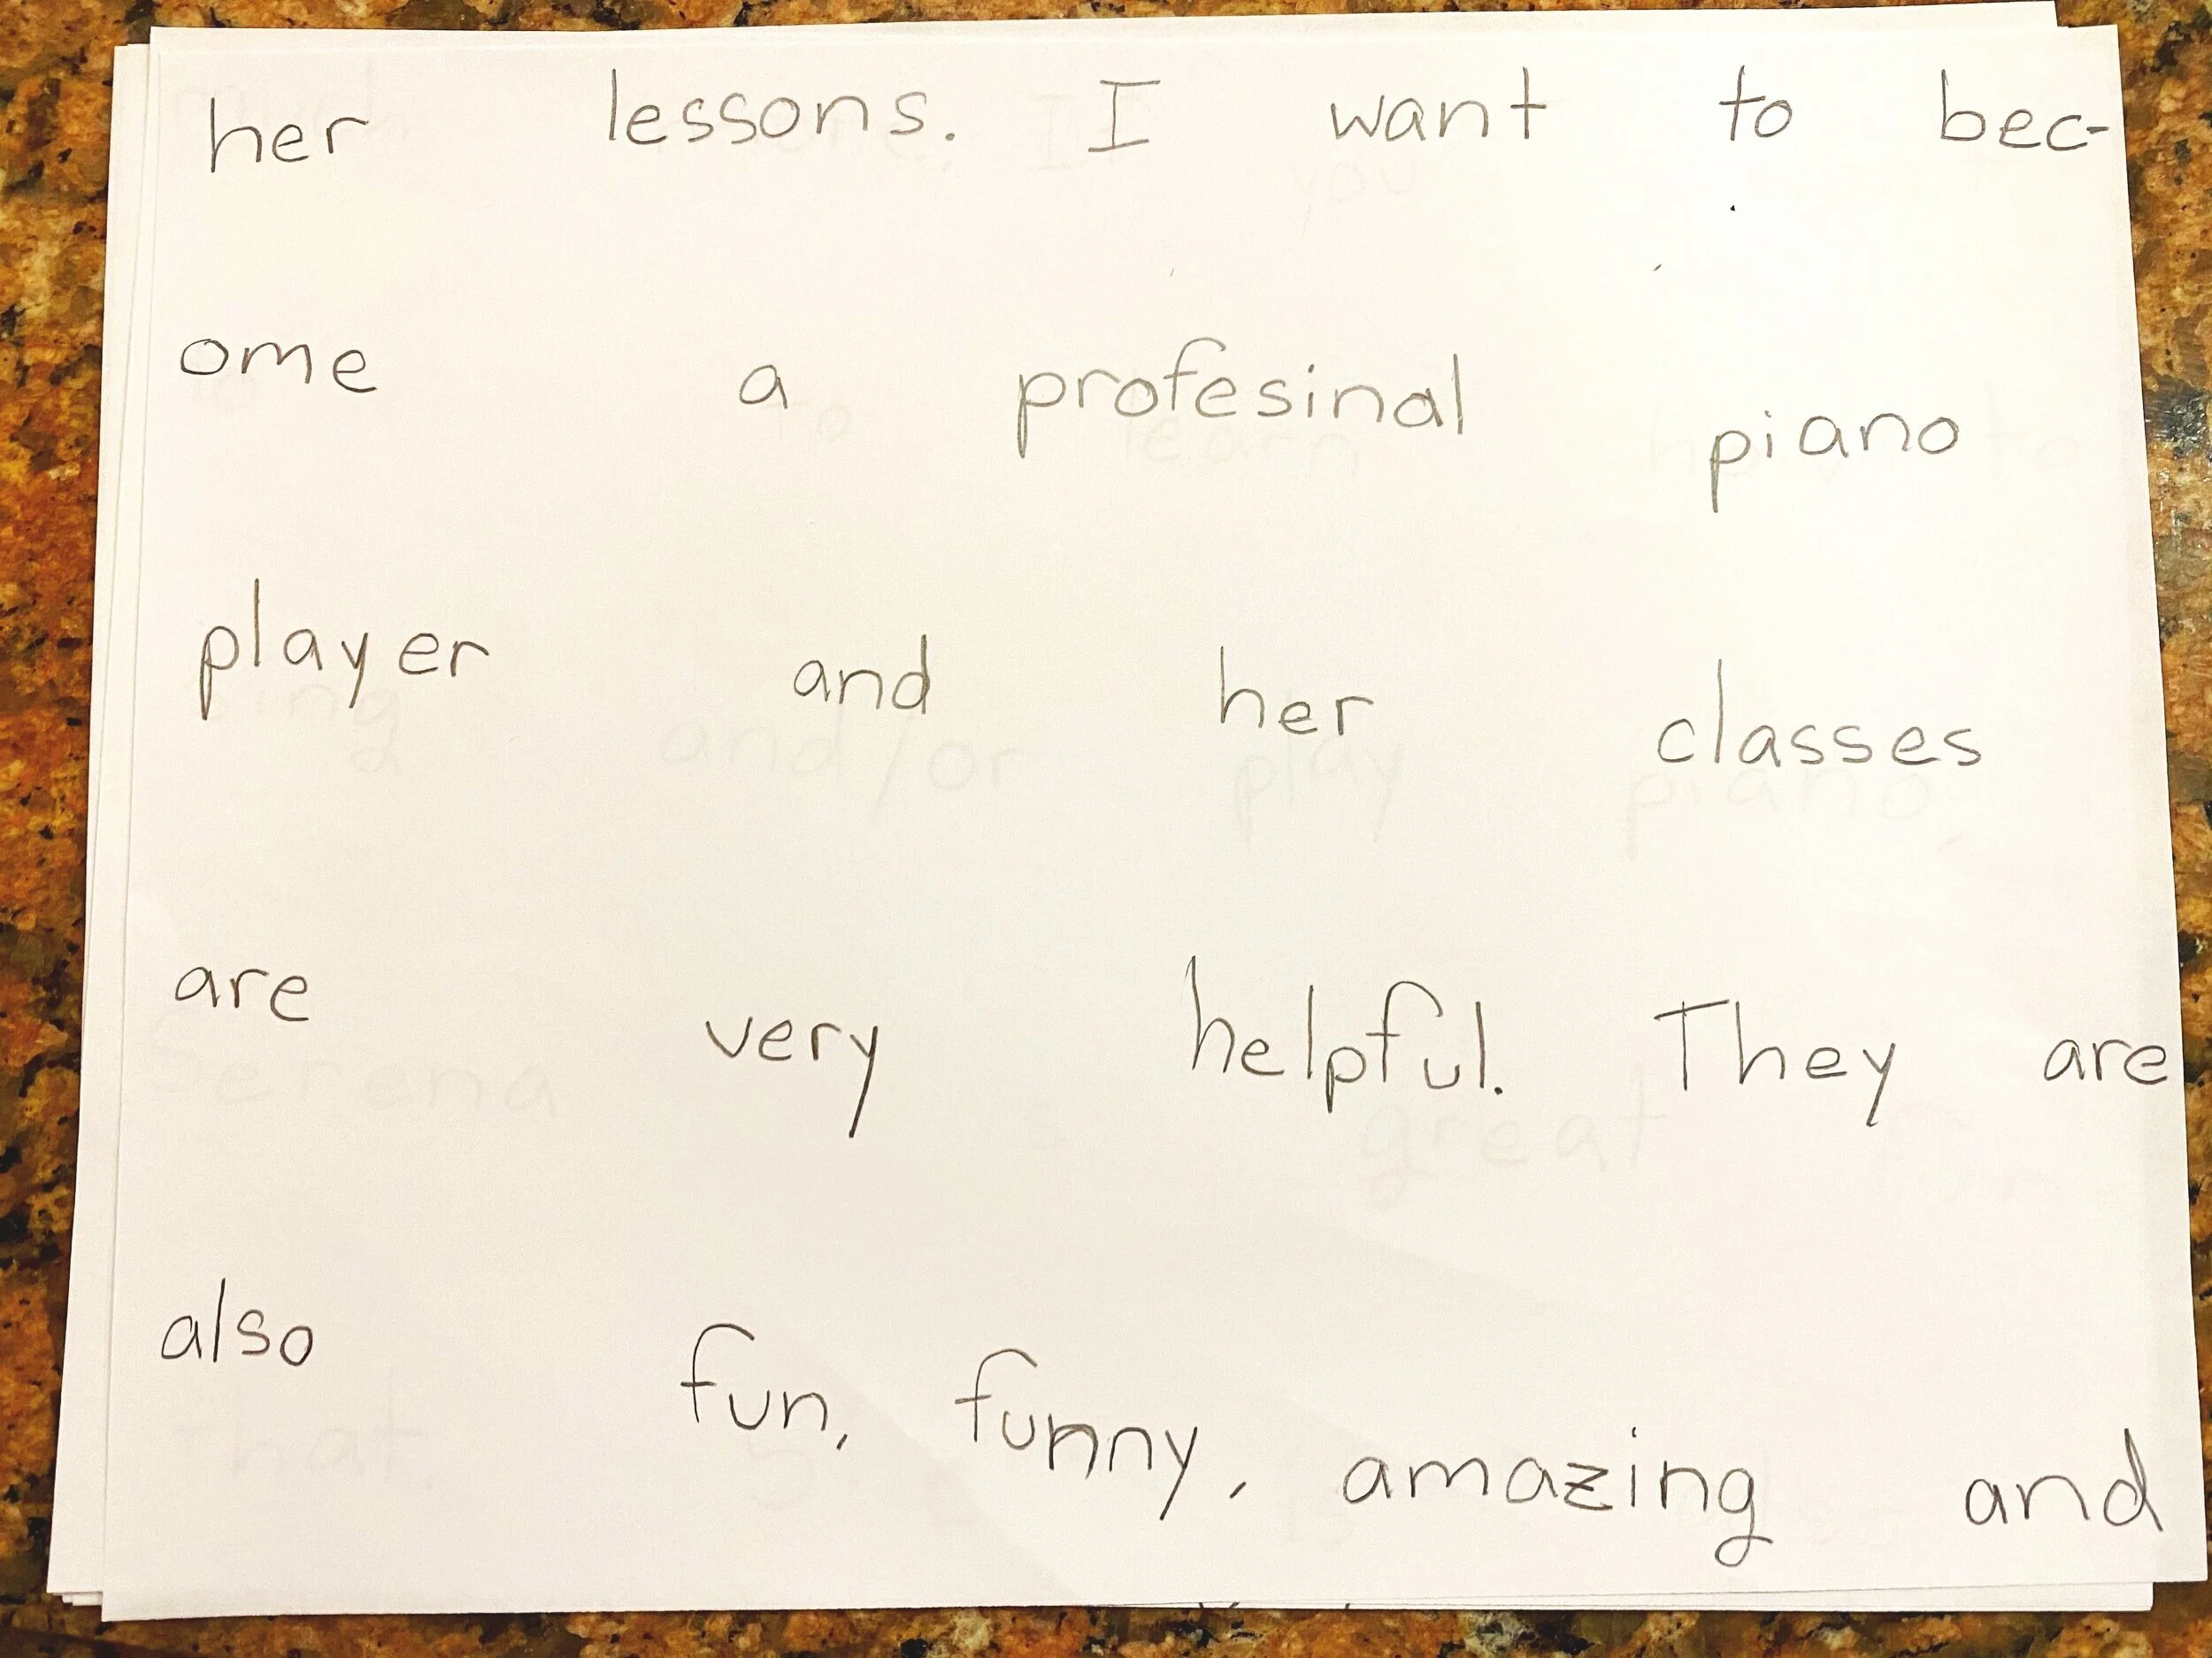 her lessons. I want to bec-
ome a profesinal piano
player and her classes
are very helpful. They are
also fun, funny, amazing and